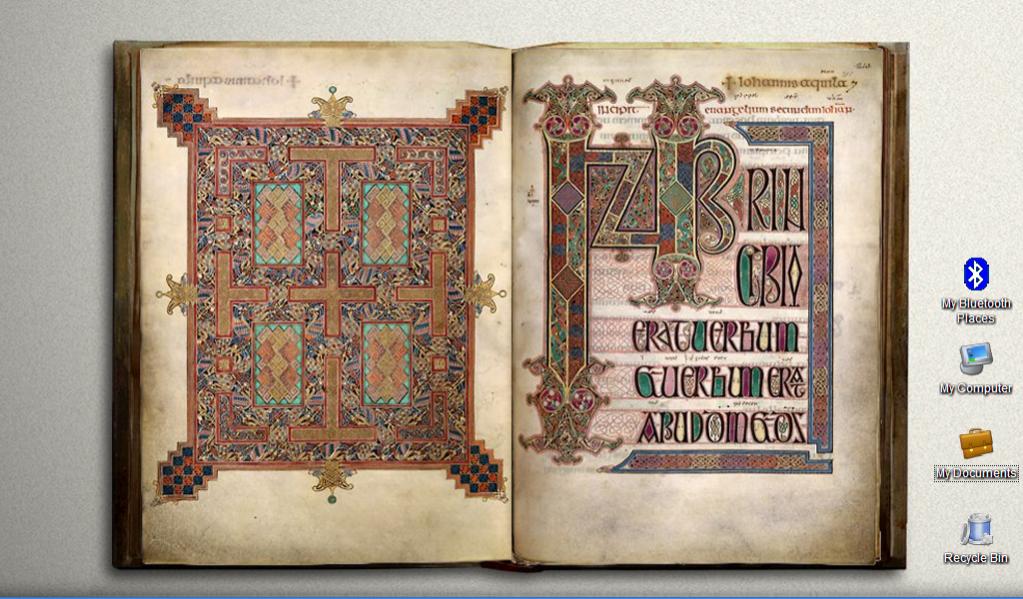 + Iohannis aquila
Incipit euangelium secundum iohan
INPRIN
CIPIO
ERATUERBUM
ETUERBUMERA
APUDDMETDS
My Bluetooth
Places
My Computer
My Documents
Recycle Bin